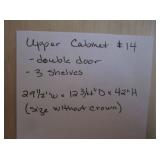 Upper Cabinet #14
- double door
- 3 shelves
29 1/2" W x 12 3/4" D x 42" H
(size without crown)